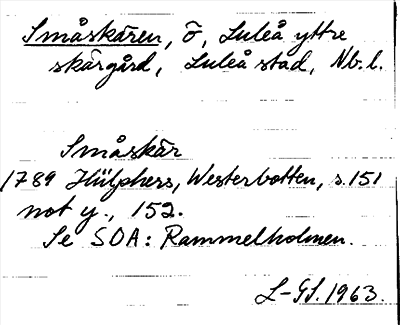 Småskären, ö, Luleå yttre
skärgård, Luleå stad, Nb. l.
Småskär
1789 Hülphers, Westerbotten, s. 151
not y., 152.
Se SOA: Rammelholmen.
L-GS. 1963.